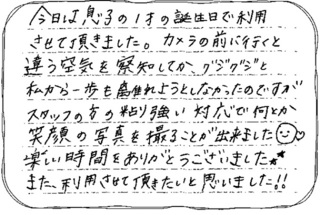 今日は息子の1才の誕生日で利用
させて頂きました。カメラの前に行くと
違う空気を察知してか、グジグジと
私から一歩も離れようとしなかったのですが
スタッフの方の粘り強い対応で何とか
笑顔の写真を撮ることが出来ました☺♡
楽しい時間をありがとうございました★★
また、利用させて頂きたいと思いました!!